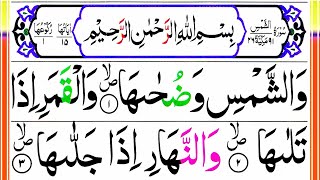 سُوْرَةُ الشَّمْسِ
بِسْمِ اللّٰهِ الرَّحْمٰنِ الرَّحِيْمِ
اٰيَاتُهَا ١٥ رُكُوْعُهَا ١
وَالشَّمْسِ وَضُحٰىهَا ۝١ وَالْقَمَرِ اِذَا
تَلٰىهَا ۝٢ وَالنَّهَارِ اِذَا جَلّٰىهَا ۝٣